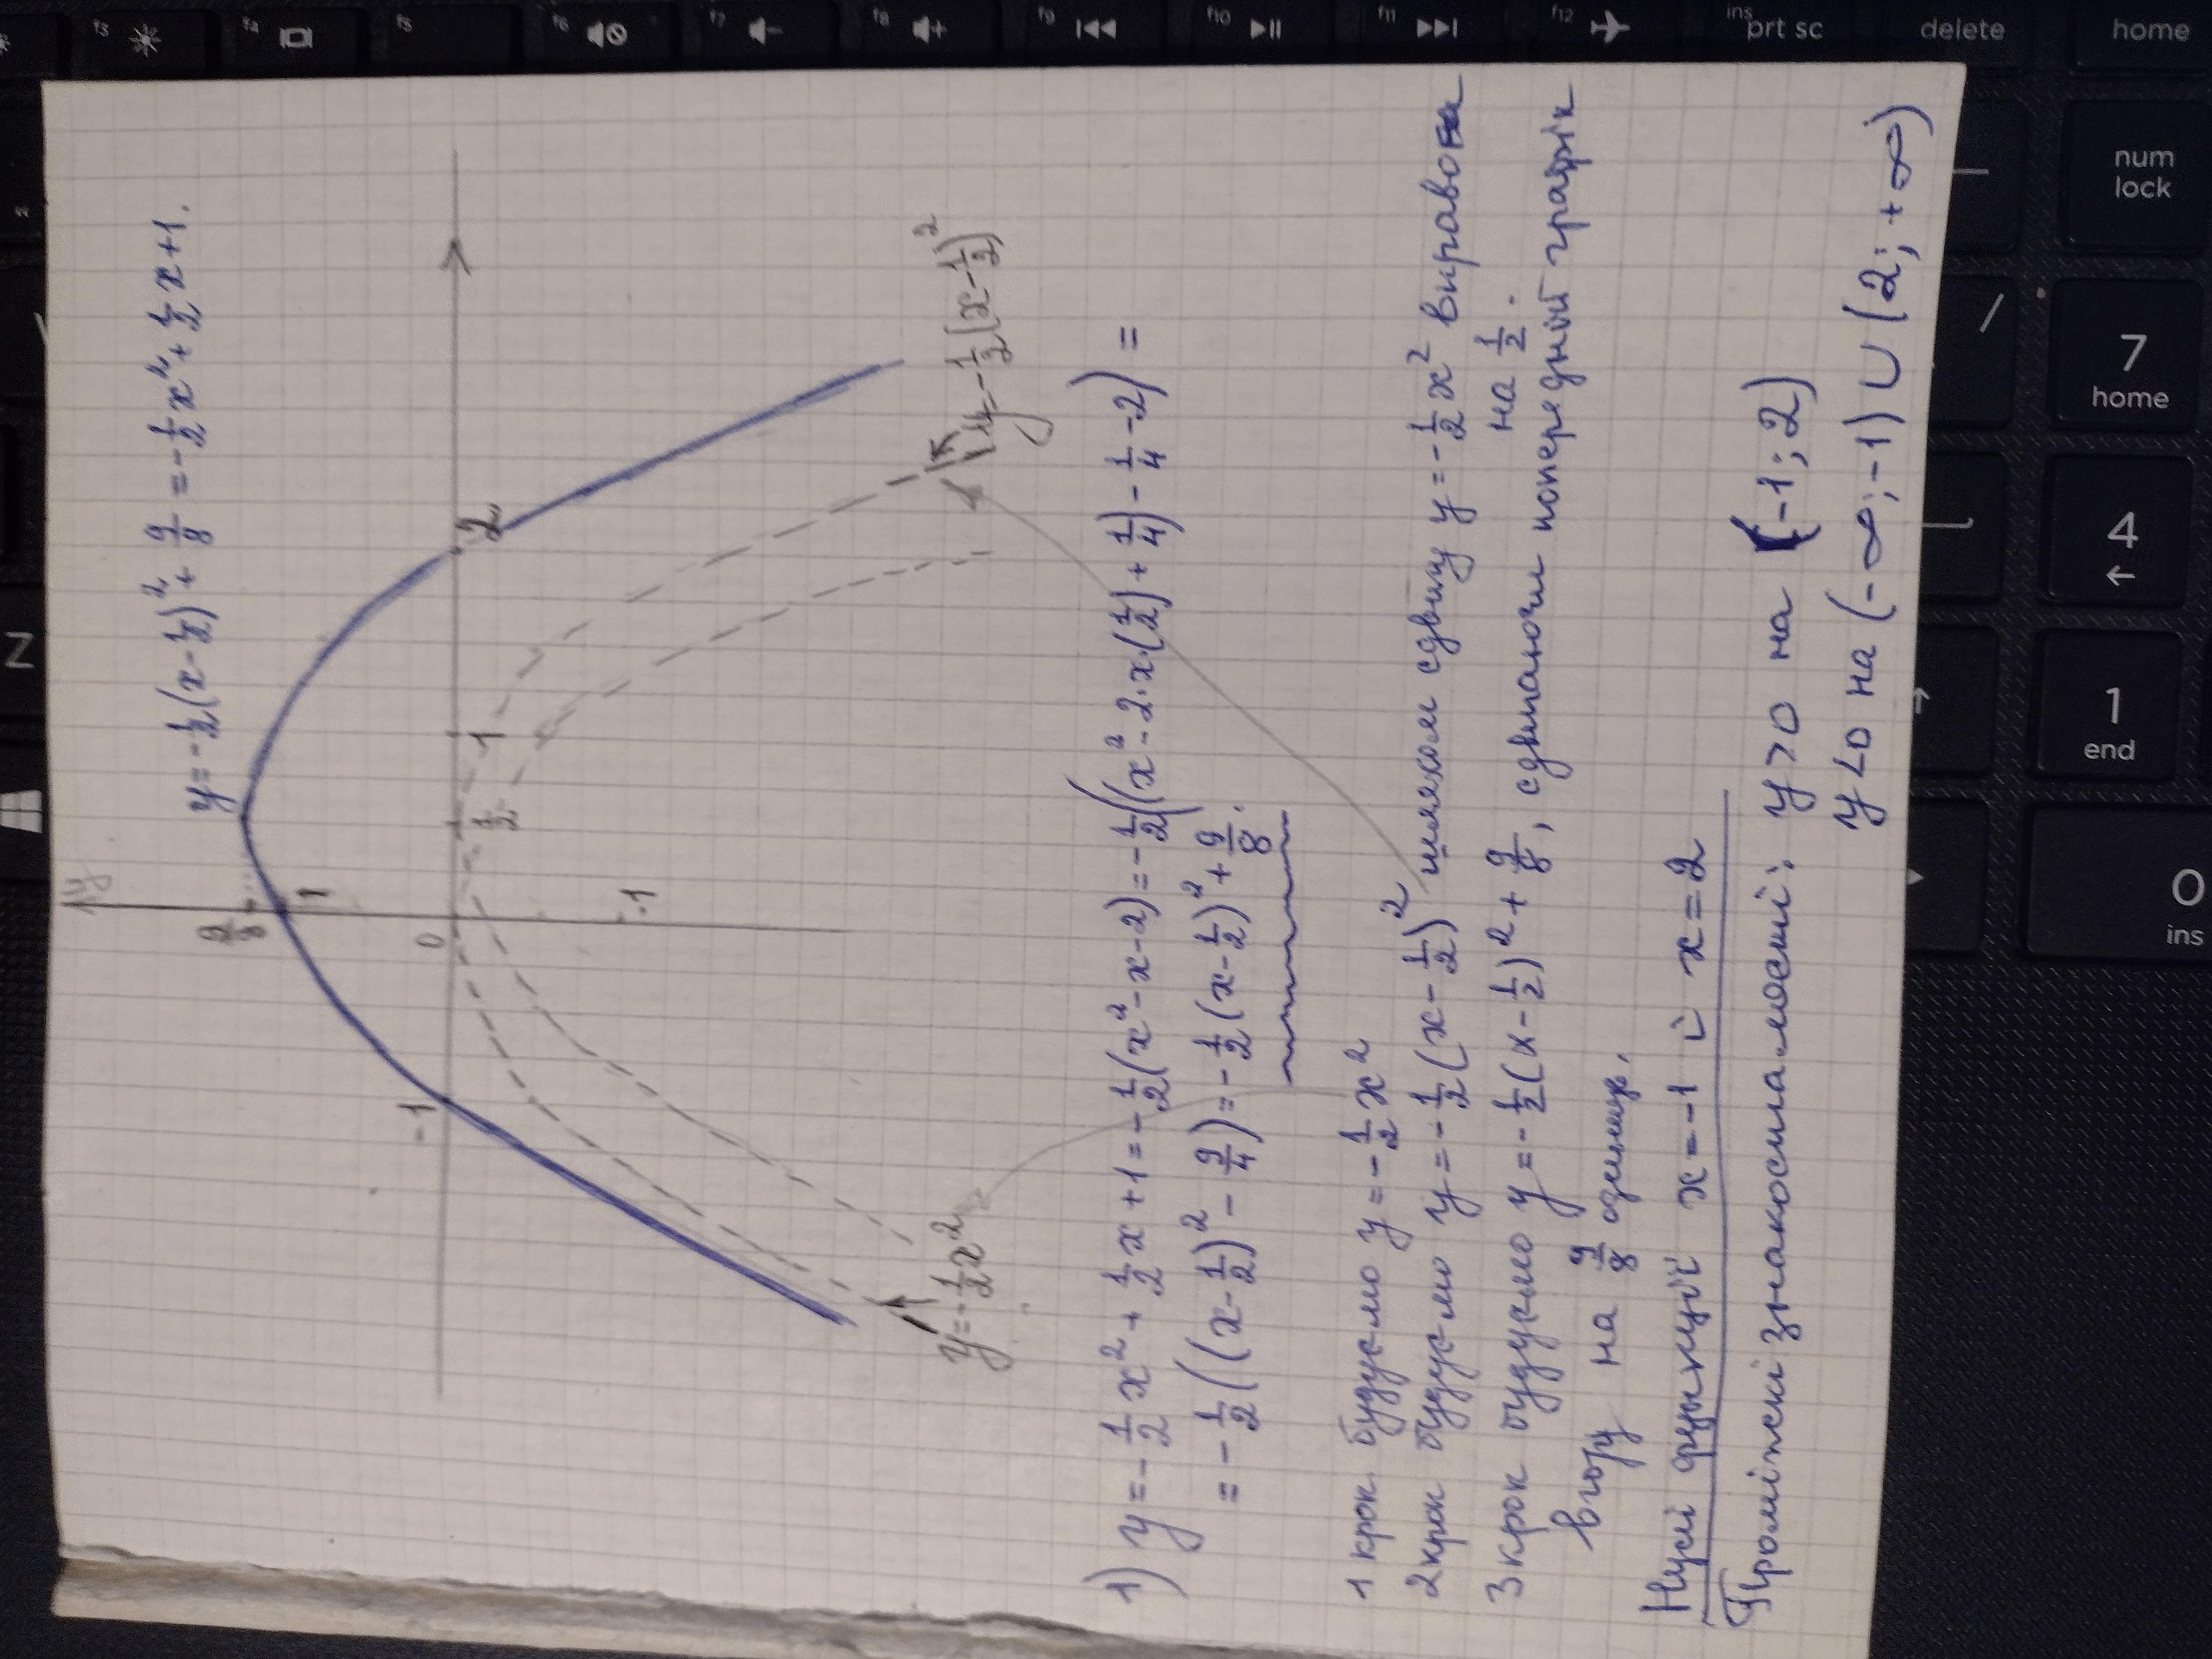 y = -1/2(x - 1/2)² + 9/8 = -1/2x² + 1/2x + 1.
y
9/8
1
0
-1
1/2
1
2
-1
y = -1/2x²
y = -1/2(x - 1/2)²
1) y = -1/2x² + 1/2x + 1 = -1/2(x² - x - 2) = -1/2((x² - 2·x·(1/2) + 1/4) - 1/4 - 2) =
= -1/2((x - 1/2)² - 9/4) = -1/2(x - 1/2)² + 9/8.
1 крок будуємо y = -1/2x²
2 крок будуємо y = -1/2(x - 1/2)² шляхом сдвигу y = -1/2x² вправо
на 1/2.
3 крок будуємо y = -1/2(x - 1/2)² + 9/8, сдвигаючи попередній графік
вгору на 9/8 одениць.
Нулі функції x = -1 і x = 2
Проміжкі знакосталості: y > 0 на (-1; 2)
y < 0 на (-∞; -1) ∪ (2; +∞)
f3
f4
f5
f6
f7
f8
f9
f10
f11
f12
ins
prt sc
delete
home
num
lock
7
home
4
←
1
end
0
ins
Z
/